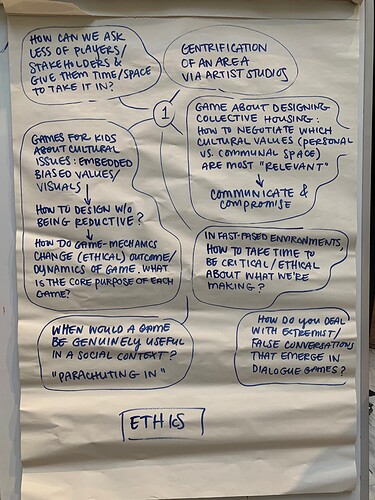 HOW CAN WE ASK
LESS OF PLAYERS/
STAKEHOLDERS &
GIVE THEM TIME/SPACE
TO TAKE IT IN?
GENTRIFICATION
OF AN AREA
VIA ARTIST STUDIOS
1
GAME ABOUT DESIGNING
COLLECTIVE HOUSING:
HOW TO NEGOTIATE WHICH
CULTURAL VALUES (PERSONAL
VS. COMMUNAL SPACE)
ARE MOST "RELEVANT"
COMMUNICATE &
COMPROMISE
GAMES FOR KIDS
ABOUT CULTURAL
ISSUES: EMBEDDED
BIASED VALUES/
VISUALS
HOW TO DESIGN W/O
BEING REDUCTIVE?
HOW DO GAME-MECHNICS
CHANGE (ETHICAL) OUTCOME/
DYNAMICS OF GAME. WHAT
IS THE CORE PURPOSE OF EACH
GAME?
IN FAST-PASED ENVIRONMENTS,
HOW TO TAKE TIME TO
BE CRITICAL / ETHICAL
ABOUT WHAT WE'RE
MAKING?
WHEN WOULD A GAME
BE GENUINELY USEFUL
IN A SOCIAL CONTEXT?
"PARACHUTING IN"
HOW DO YOU DEAL
WITH EXTREMIST/
FALSE CONVERSATIONS
THAT EMERGE IN
DIALOGUE GAMES?
ETHICS